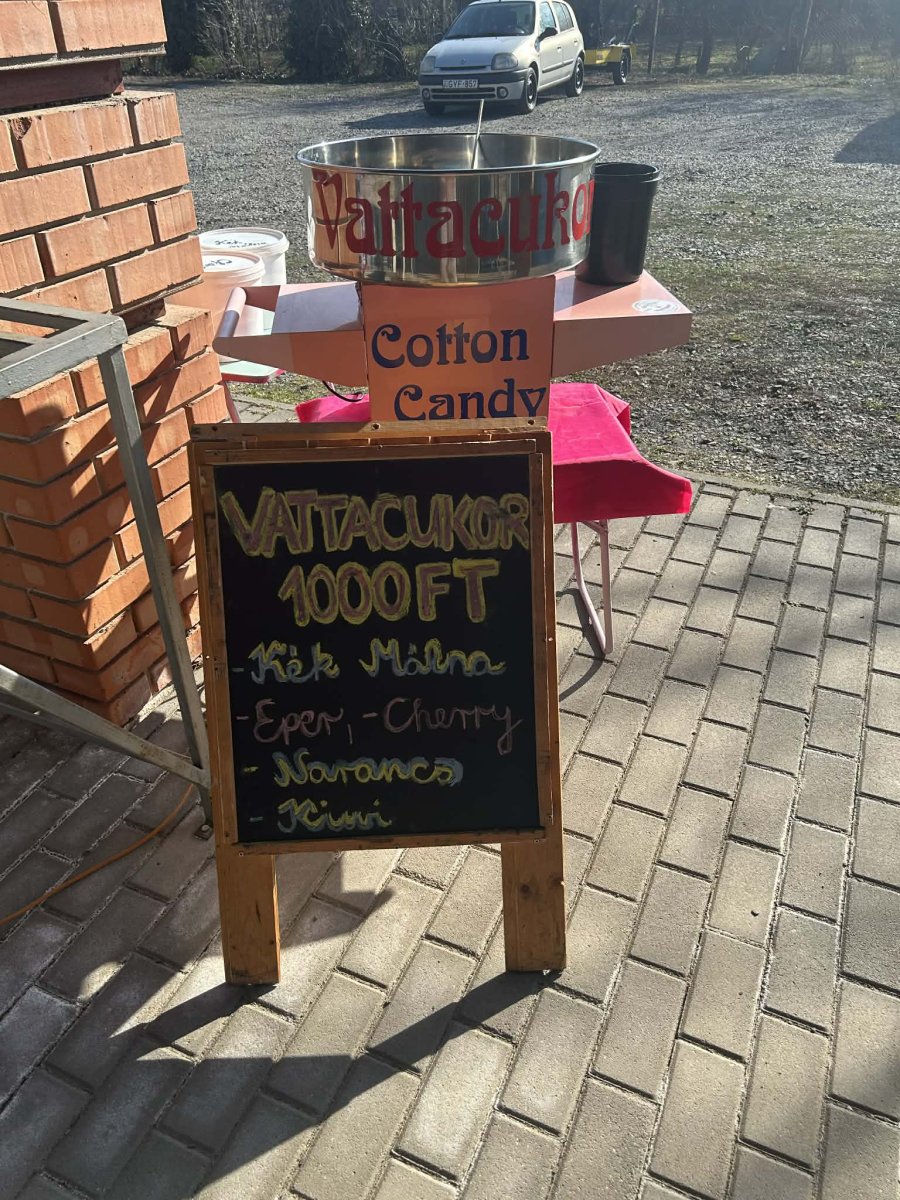 GVF-857
Vattacukor
Kék
Málna
Cotton
Candy
VATTACUKOR
1000FT
-Kék Málna
-Eper, -Cherry
- Narancs
- Kiwi